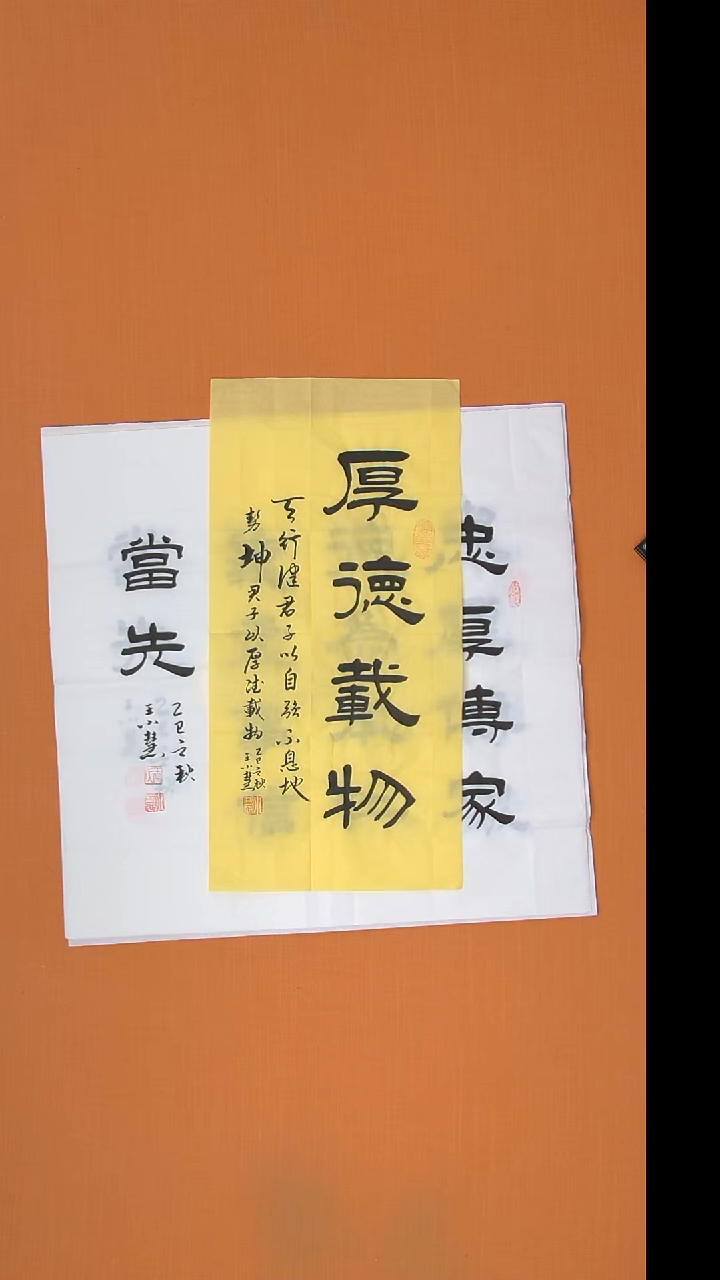 忠厚傳家
厚德載物
天行健君子以自強不息地
勢坤君子以厚德載物
乙巳立秋
王小慧
當先
乙巳立秋
王小慧